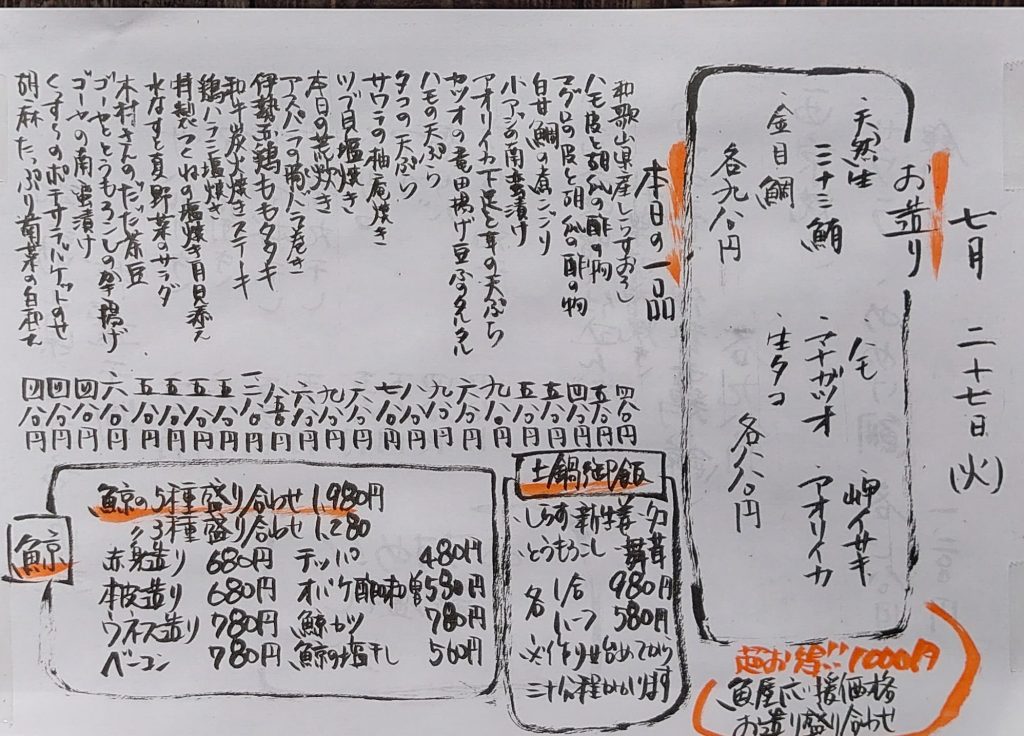 七月 二十七日(火)
お造り
天然生
ミナミ鮪
金目鯛
各九八〇円
ハモ
マナガツオ
生タコ
岬イサキ
アオリイカ
各八八〇円
超お得!!1000円
魚屋応援価格
お造り盛り合わせ
本日の一品
和歌山県産しらすおろし 四八〇円
ハモ皮と胡瓜の酢の物 五八〇円
マグロの皮と胡瓜の酢の物 四八〇円
白甘鯛の煮こごり 五八〇円
小アジの南蛮漬け 五八〇円
アオリイカ下足と茸の天ぷら 九八〇円
カツオの竜田揚げ豆ぶのタルタル 六八〇円
ハモの天ぷら 九八〇円
タコの天ぷら 八八〇円
サワラの柚庵焼き 七八〇円
ツブ貝塩焼き 六八〇円
本日の荒炊き 九八〇円
アスパラの豚バラ巻き 六八〇円
伊勢玉鶏ももタタキ 八五〇円
和牛炭火焼きステーキ
鶏ハラミ塩焼き 五八〇円
特製つくねの塩焼き月見添え 五八〇円
水なすと夏野菜のサラダ 五八〇円
木村さんのだだ茶豆 五八〇円
ゴーヤととうもろこしのかき揚げ 六八〇円
ゴーヤの南蛮漬け 四八〇円
くずきりのポテサラ 四八〇円
胡麻たっぷり菊菜の白和え 四八〇円
土鍋御飯
しらす新生姜
とうもろこし 舞茸
各 1合 980円
ハーフ 580円
※作り始めてから
三十分程かかります
鯨
鯨の5種盛り合わせ 1,980円
〃3種盛り合わせ 1,280
赤身造り 680円 テッパ 480円
本皮造り 680円 オバケ酢味噌 580円
ウネス造り 780円 鯨カツ 780円
ベーコン 780円 鯨の塩干し 560円